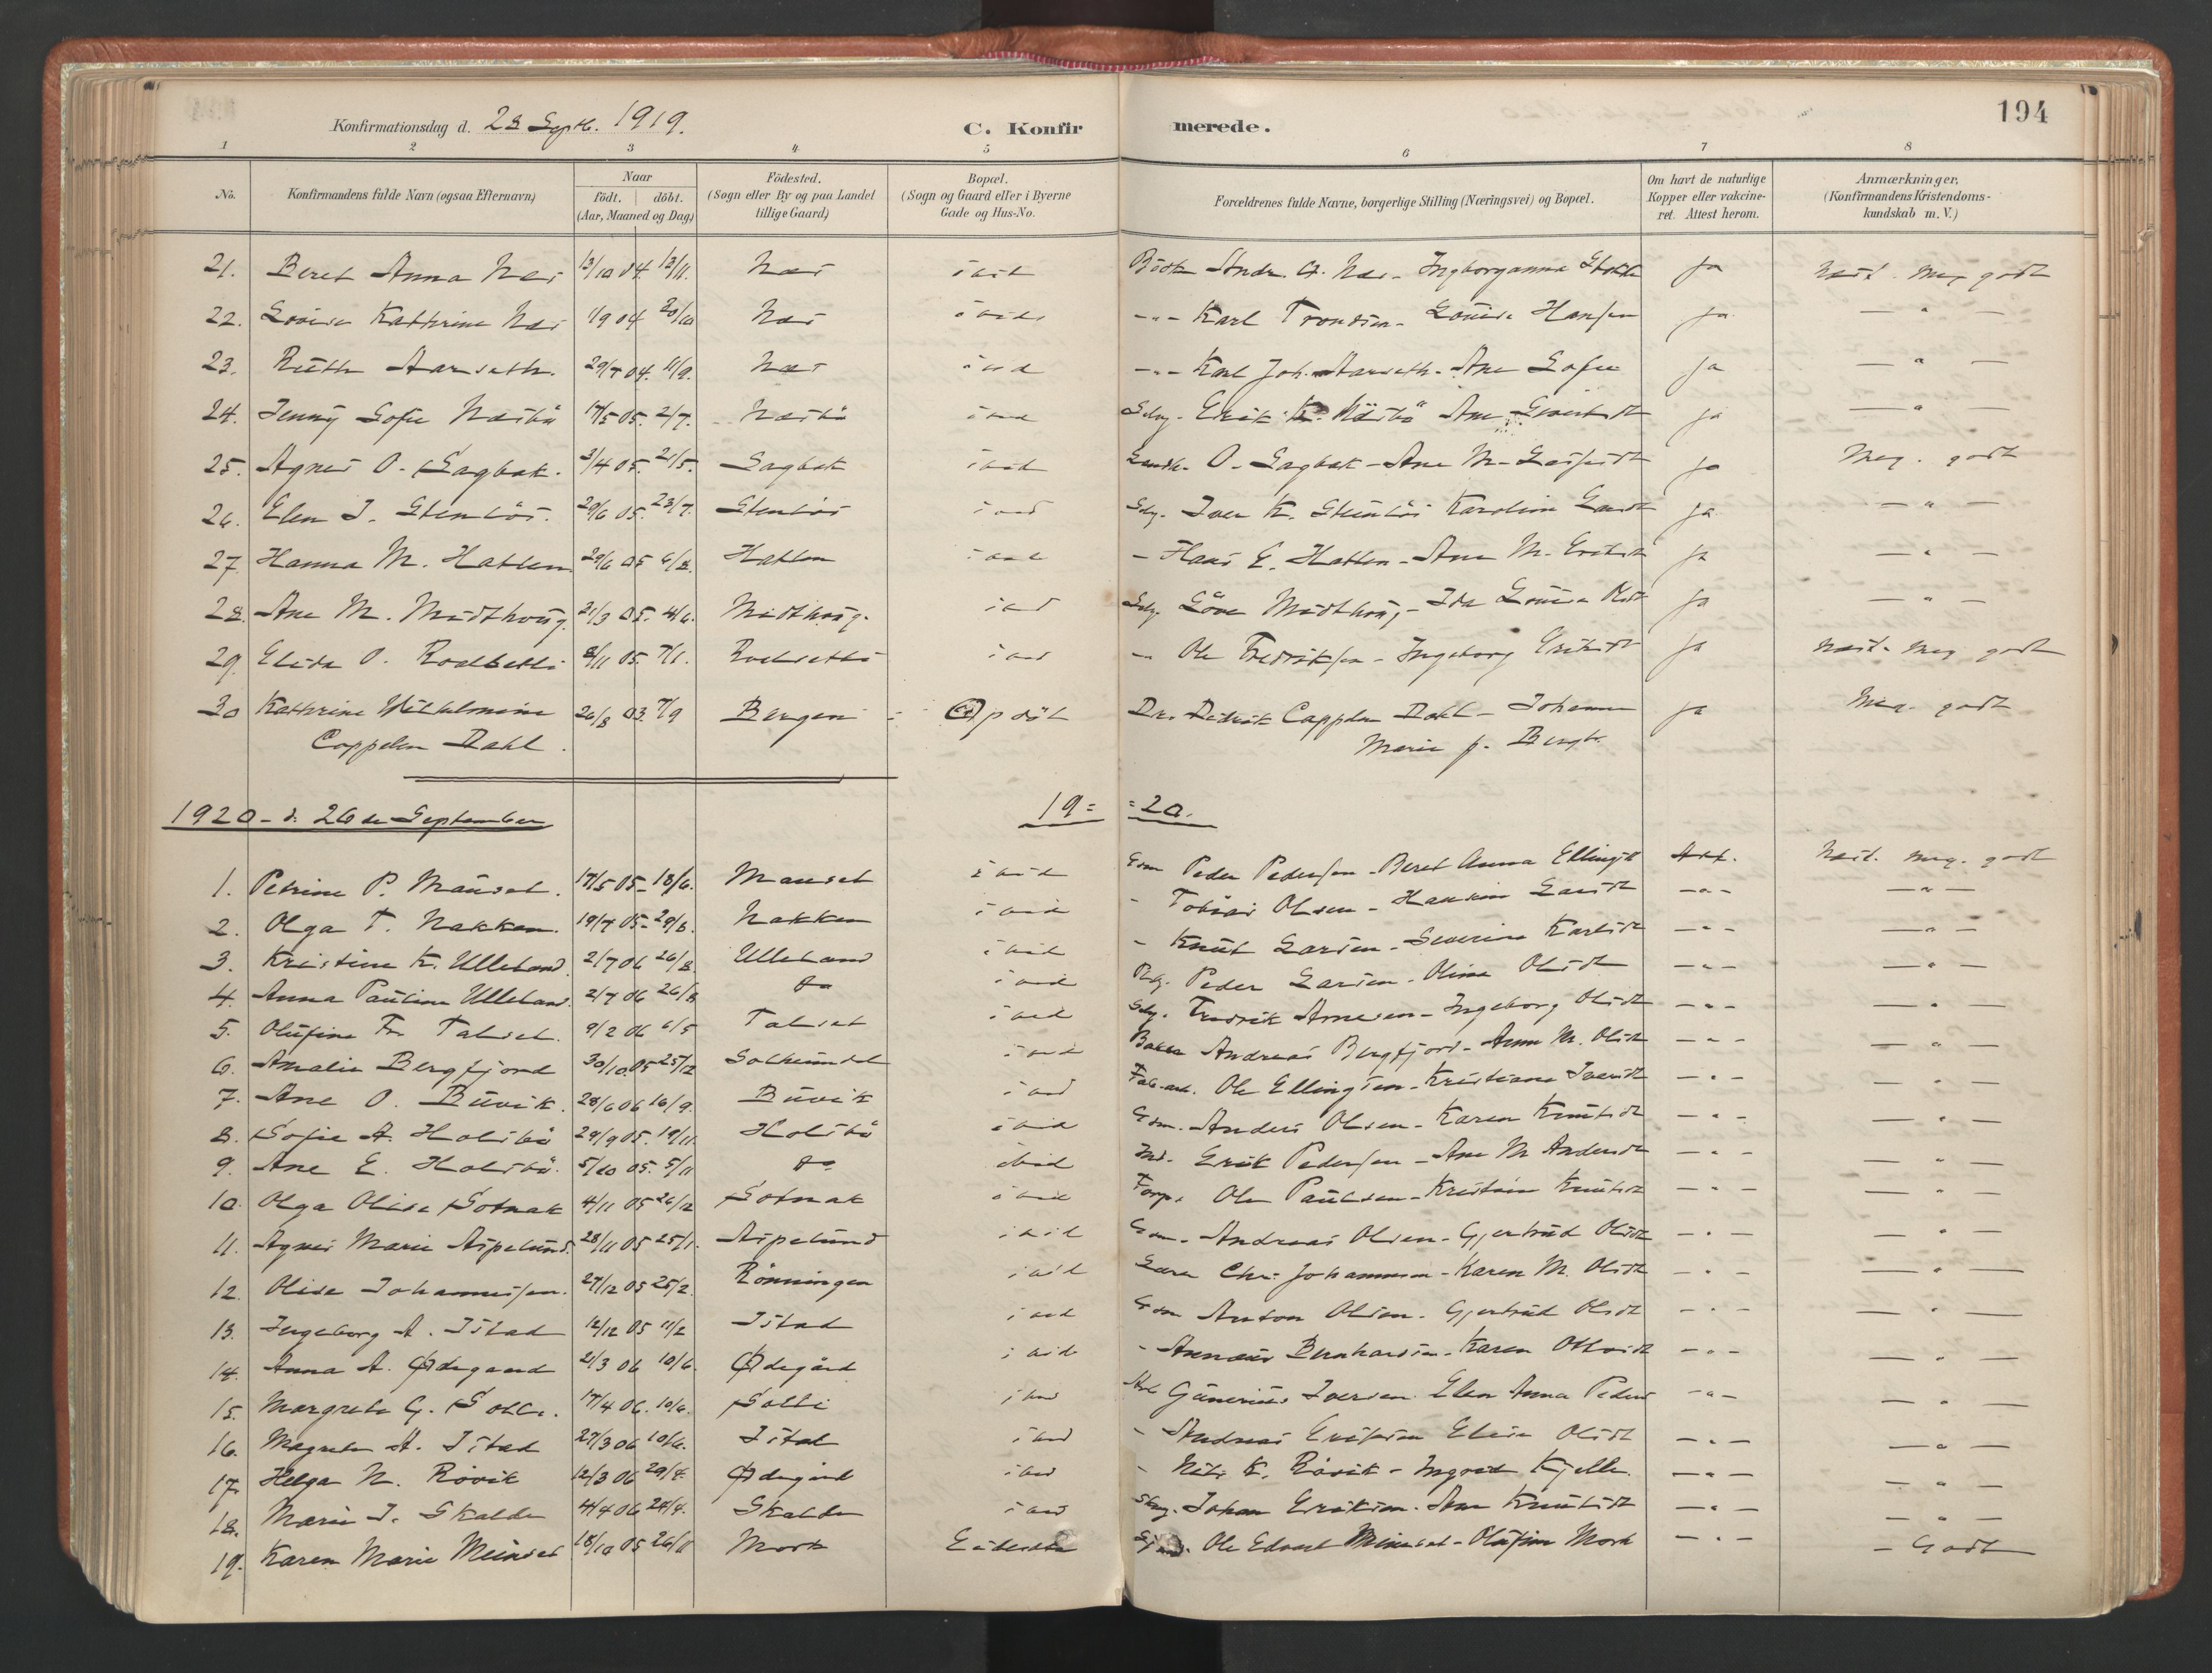 194
Konfirmationsdag d. 28 Septb. 1919. C. Konfir merede.
1 2 3 4 5 6 7 8
No. Konfirmandens fulde Navn (ogsaa Efternavn) Naar födt. döbt. (Aar, Maaned og Dag) Födested. (Sogn eller By og paa Landet tillige Gaard) Bopæl. (Sogn og Gaard eller i Byerne Gade og Hus-No. Forældrenes fulde Navne, borgerlige Stilling (Næringsvei) og Bopæl. Om havt de naturlige Kopper eller vakcineret. Attest herom. Anmærkninger, (Konfirmandens Kristendomskundskab m. V.)
21. Beret Anna Næs 13/10 04. 13/11. Næs ibid Andr. A. Næs - Ingborganna ja Næst. meg godt
22. Lovise Kathrine Næs 1/9 04 30/10 Næs ibid -"- Karl Trondsen - Lovise Hansen ja — " —
23. Ruth Aarseth. 29/7 04. 11/9. Næs ibid -"- Karl Joh. Aarseth - Ane Sofie ja — " —
24. Jenny Sofie Næsbö 17/5 05. 2/7. Næsbö ibid Selvg. Erik K. Näsbö Ane ja — " —
25. Agnes O. Sagbak. 3/4 05. 21/5. Sagbak ibid O. Sagbak - Ane M. ja Meg. godt
26. Elen I. Stenlös. 29/6 05. 23/7. Stenlös ibid Selg. Iver K. Stenlös Karoline Larsdt ja — " —
27 Hanna M. Hatlen 29/6 05 6/8. Hatlen ibid - Hans E. Hatlen - Ane M. Eriksdt ja — " —
28. Ane M. Midthoug. 21/3 05. 4/6. Midthoug. ibid Selg. Midthoug - Ida Lovise Olsdt ja — " —
29. Elida O. 8/11 05. 7/1. ibid - Ole Fredriksen - Ingeborg Eriksdt ja Næst. meg godt
30 Kathrine Wilhelmine 26/8 03. 7/9 Bergen Opdöl Dr. Didrik Cappelen Dahl - Johanne ja Meg. godt
Cappelen Dahl. Marie f. Bergh.
1920 - d. 26de September 19= =20.
1. Petrine P. Mauset. 17/5 05 - 18/6. Mauset ibid Gm Peder Pedersen - Beret Anna Ellingsdt Att. Næst. meg. godt
2. Olga T. Nakken. 19/7 05 - 29/8. Nakken ibid - Tobias Olsen - Larsdt -"- —"—
3. Kristine K. Ulleland 2/7 06 26/8. Ulleland ibid - Knut Larsen - Severine Karlsdt -"- —"—
4. Anna Pauline Ulleland. 2/7 06 26/8 do ibid Peder Larsen - Oline Olsdt -"- —"—
5. Olufine Fr. Talset. 9/2 06 6/5 Talset ibid Selg. Fredrik Arnesen - Ingeborg Olsdt -"- —"—
6. Amalie Bergfjord 30/10. 05 25/12 Solheimdal ibid Baker Andreas Bergfjord - Anna M. Olsdt -"- —"—
7. Ane O. Buvik. 28/6 06 16/9. Buvik ibid Fab. arb. Ole Ellingsen - Kristiane Iversdt -"- —"—
8. Sofie A. Holsbö 29/9 05. 19/11. Holsbö ibid Gm. Anders Olsen - Karen Knutsdt -"- —"—
9. Ane E. Holsbö. 5/10 05. 5/11 do ibid Ind. Erik Pedersen - Ane M. Andersdt -"- —"—
10. Olga Olise Sotnak 4/11 05 26/12 Sotnak ibid Forp. Ole Paulsen - Kristine Knutsdt -"- —"—
11. Agnes Marie Aspelund. 28/11 05 25/1. Aspelund ibid Gm. Andreas Olsen - Gjertrud Olsdt -"- —"—
12. Olise Johannessen. 27/12 05 25/2. Rönningen ibid Lærer Chr. Johannesen - Karen M. Olsdt -"- —"—
13. Ingeborg A. Istad 12/12 05 11/2 Istad ibid Gm Anton Olsen - Gjertrud Olsdt -"- —"—
14. Anna A. Ødegaard 21/3 06 10/6. Ødegård ibid - Bernhardsen - Karen -"- —"—
15. Margrete G. Solli. 17/4 06. 10/6. Solli ibid Arb Gunerius Iversen Elen Anna Peders -"- —"—
16. Magrete A. Istad 27/3 06 10/6. Istad ibid - Andreas Eriksen Elise Olsdt -"- —"—
17. Helga N. Rövik 12/3 06 29/4. Ødegård ibid - Nils K. Rövik - Ingrid -"- —"—
18. Marie J. Skalde 4/4 06 24/4. Skalde ibid Johan Eriksen - Ane Knutsdt -"- —"—
19. Karen Marie Meinset 18/10 05 26/11 Mork Ole Edvard Meinset - Olufine Mork -"- - Godt